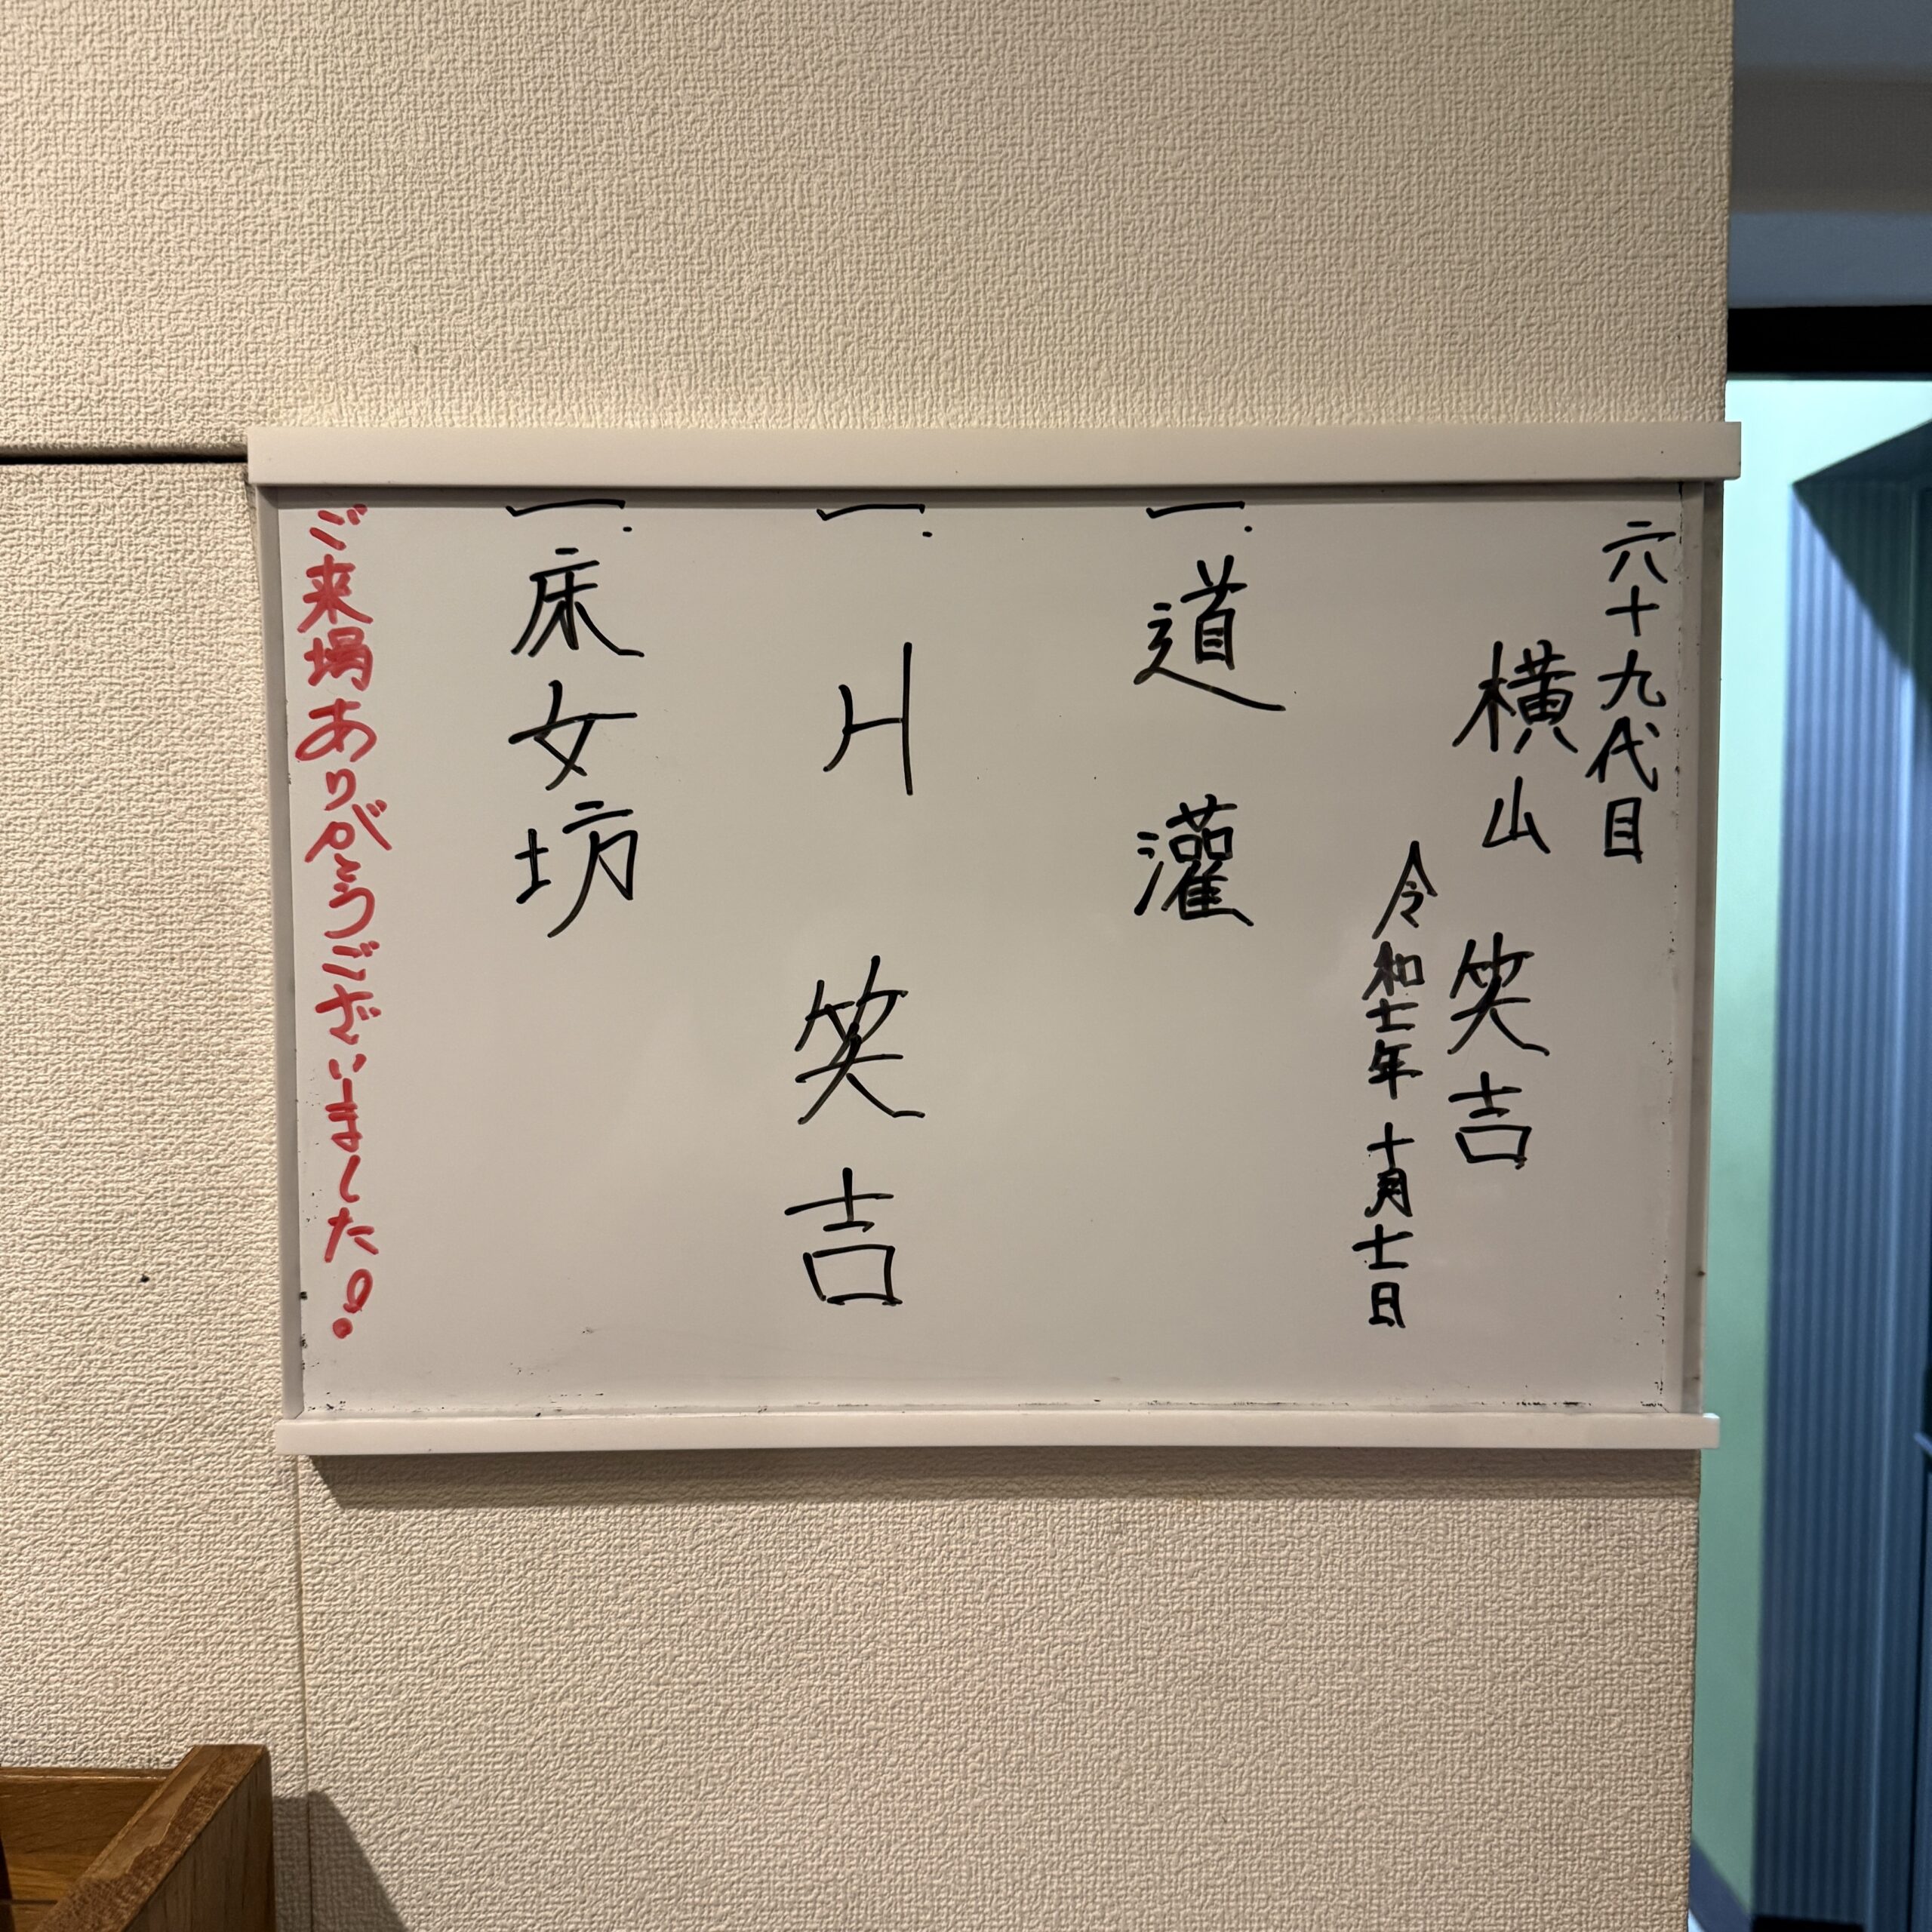 六十九代目
横山 笑吉
令和七年 十月十一日
一. 道灌
一. 笑吉
一. 床女坊
ご来場ありがとうございました!